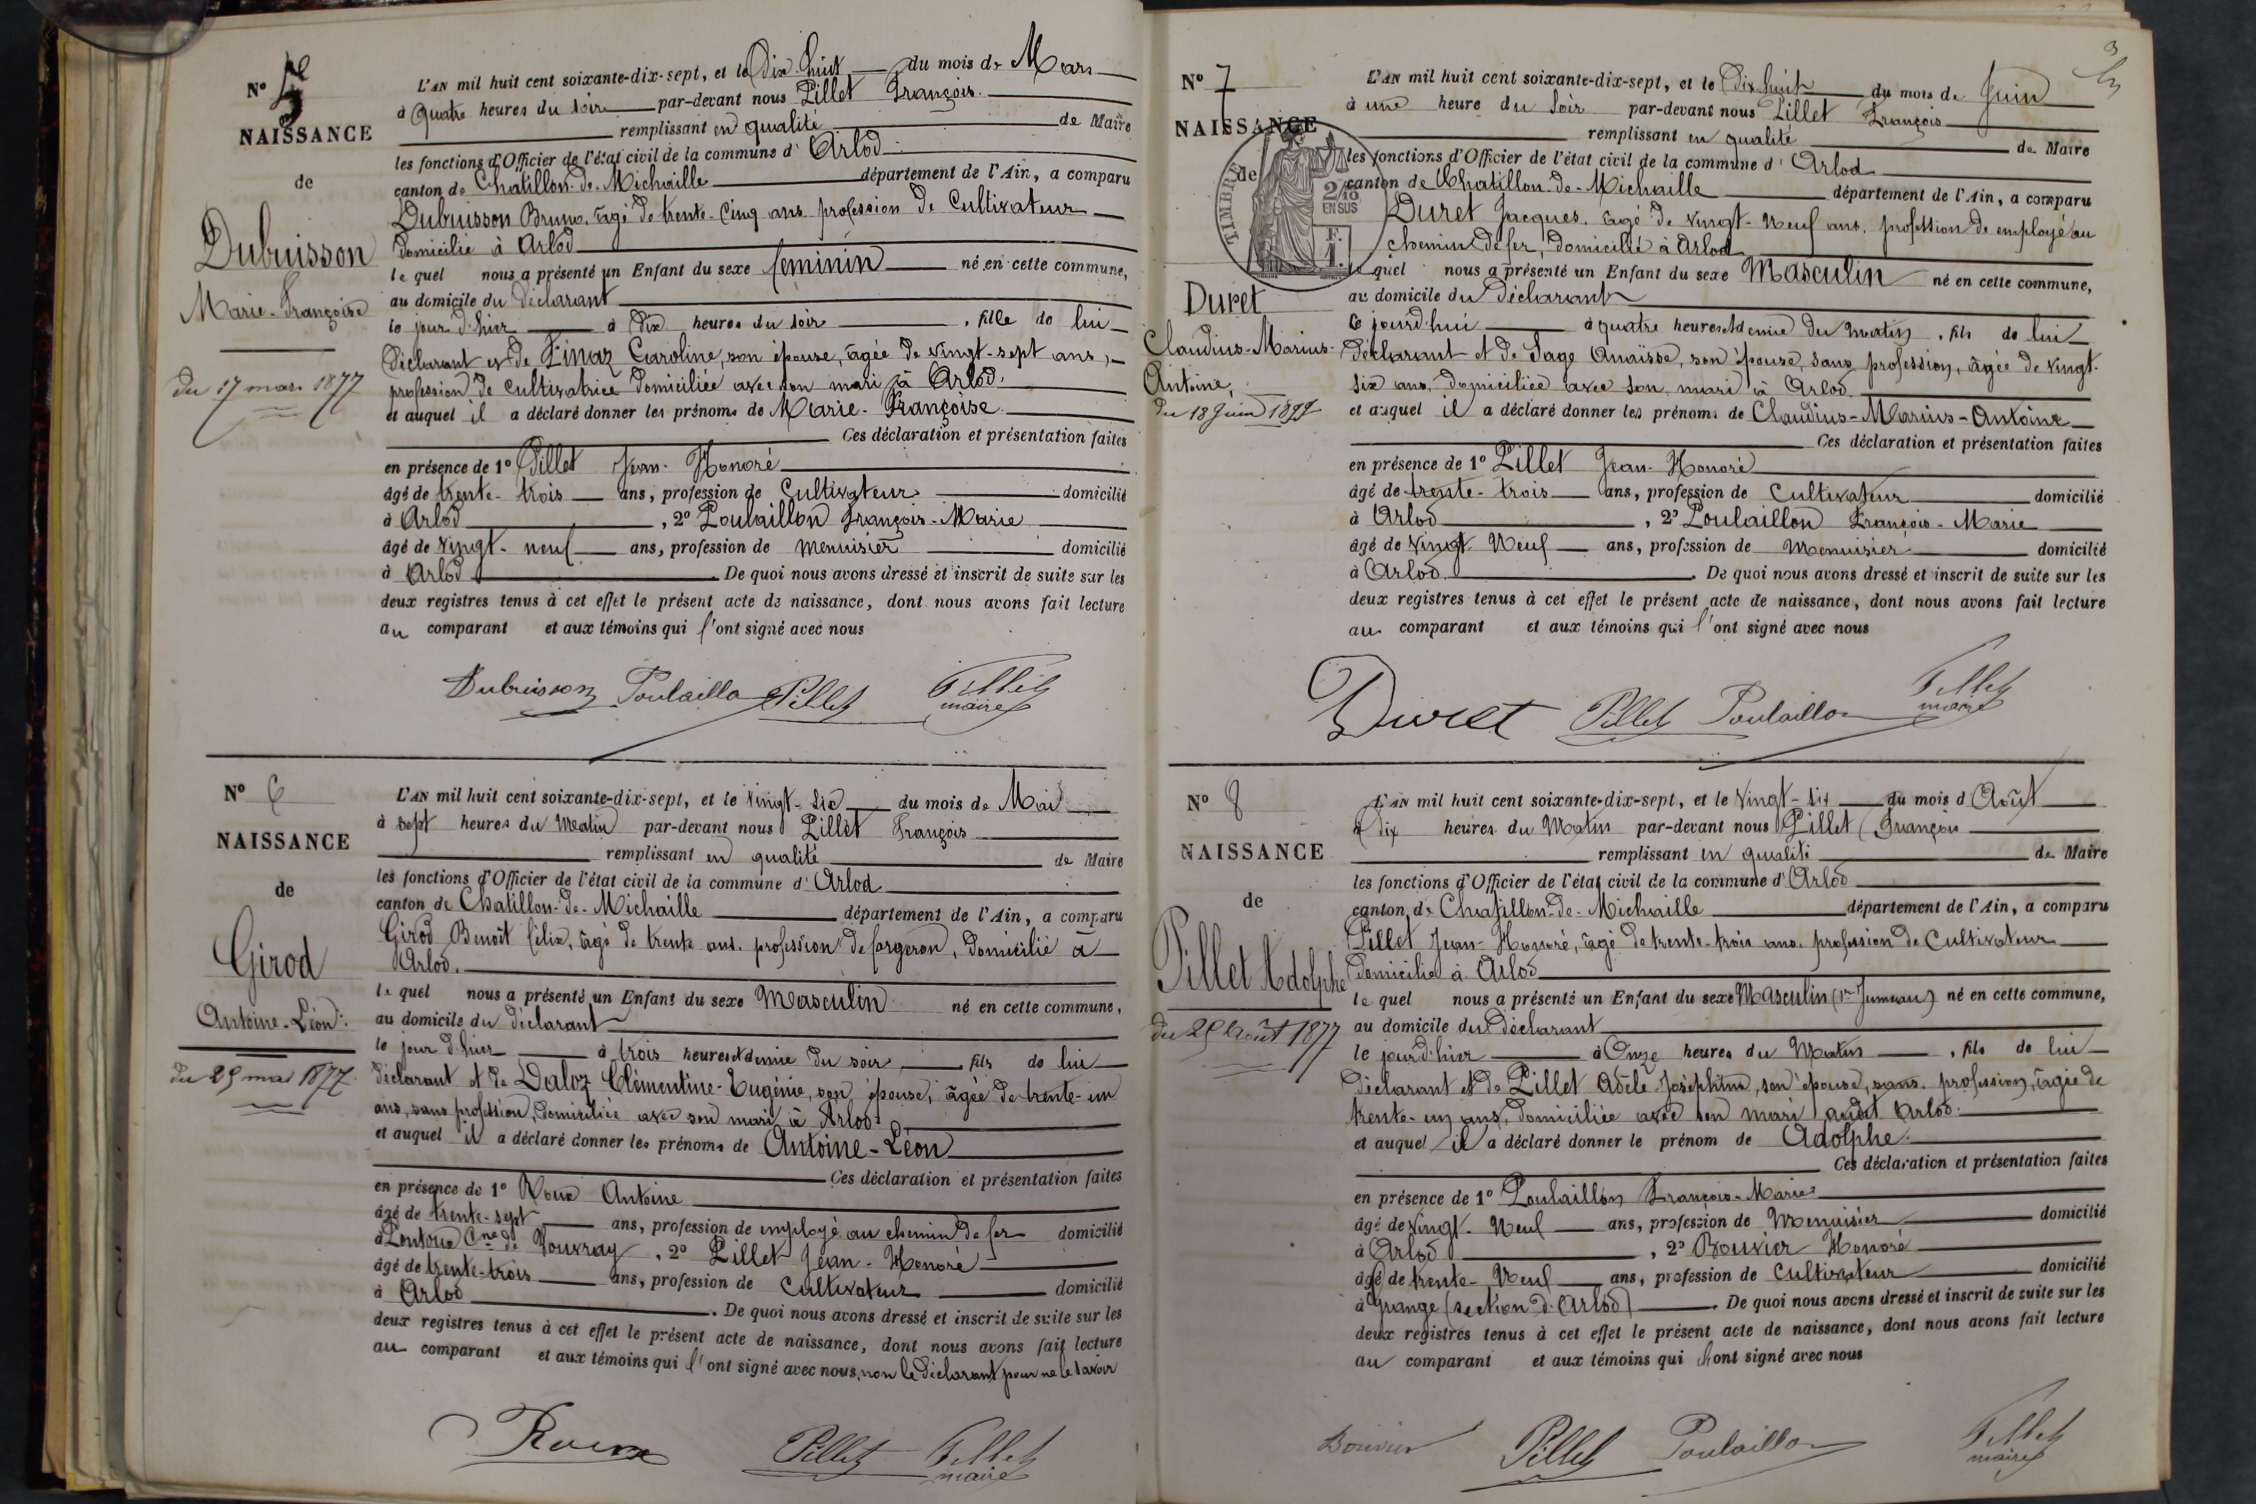 N° 5
NAISSANCE
de
Dubuisson
Marie-Françoise
du 17 mars 1877
L'AN mil huit cent soixante-dix-sept, et le Dix-huit du mois de Mars
à Quatre heures du soir par-devant nous Pillet François
remplissant en qualité de Maire
les fonctions d'Officier de l'état civil de la commune d'Arlod
canton de Châtillon-de-Michaille département de l'Ain, a comparu
Dubuisson Bruno, âgé de trente-cinq ans profession de Cultivateur
domicilié à Arlod
le quel nous a présenté un Enfant du sexe féminin né en cette commune,
au domicile du déclarant
le jour d'hier à Dix heures du soir, fille de lui
déclarant et de Finaz Caroline, son épouse, âgée de vingt-sept ans,
profession de cultivatrice domiciliée avec son mari à Arlod.
et auquel il a déclaré donner les prénoms de Marie-Françoise
Ces déclaration et présentation faites
en présence de 1° Pillet Jean-Honoré
âgé de trente-trois ans, profession de Cultivateur domicilié
à Arlod, 2° Poulaillon François-Marie
âgé de vingt-neuf ans, profession de menuisier domicilié
à Arlod. De quoi nous avons dressé et inscrit de suite sur les
deux registres tenus à cet effet le présent acte de naissance, dont nous avons fait lecture
au comparant et aux témoins qui l'ont signé avec nous
Dubuisson Poulaillon Pillet Pillet
maire
N° 6
NAISSANCE
de
Girod
Antoine-Léon
du 25 mai 1877
L'AN mil huit cent soixante-dix-sept, et le vingt-six du mois de Mai
à sept heures du Matin par-devant nous Pillet François
remplissant en qualité de Maire
les fonctions d'Officier de l'état civil de la commune d'Arlod
canton de Chatillon-de-Michaille département de l'Ain, a comparu
Girod Benoît félix, âgé de trente ans. profession de forgeron, domicilié à
Arlod.
le quel nous a présenté un Enfant du sexe Masculin né en cette commune,
au domicile du déclarant
le jour d'hier à trois heures et demie du soir, fils de lui
déclarant et de Daloz Clémentine-Eugénie, son épouse, âgée de trente-un
ans, sans profession, domiciliée avec son mari à Arlod
et auquel il a déclaré donner les prénoms de Antoine-Léon
Ces déclaration et présentation faites
en présence de 1° Roux Antoine
âgé de trente-sept ans, profession de employé au chemin de fer domicilié
à Cne de Vouvray, 2° Pillet Jean-Honoré
âgé de trente-trois ans, profession de Cultivateur domicilié
à Arlod. De quoi nous avons dressé et inscrit de suite sur les
deux registres tenus à cet effet le présent acte de naissance, dont nous avons fait lecture
au comparant et aux témoins qui l'ont signé avec nous, non le déclarant pour ne le savoir
Roux Pillet Pillet
maire
3
N° 7
NAISSANCE
de
TIMBRE
2/10
EN SUS
F.
1.
Duret
Claudius-Marius-
Antoine,
du 18 Juin 1877
L'AN mil huit cent soixante-dix-sept, et le Dix-huit du mois de Juin
à une heure du Soir par-devant nous Pillet François
remplissant en qualité de Maire
les fonctions d'Officier de l'état civil de la commune d'Arlod
canton de Chatillon-de-Michaille département de l'Ain, a comparu
Duret Jacques. âgé de vingt-Neuf ans, profession de employé au
chemin de fer, domicilié à Arlod
le quel nous a présenté un Enfant du sexe Masculin né en cette commune,
au domicile du déclarant
ce jourd'hui à quatre heures et demie du matin, fils de lui
déclarant et de Sage Anaïsse, son épouse, sans profession, âgée de vingt-
six ans, domiciliée avec son mari à Arlod.
et auquel il a déclaré donner les prénoms de Claudius-Marius-Antoine
Ces déclaration et présentation faites
en présence de 1° Pillet Jean-Honoré
âgé de trente-trois ans, profession de Cultivateur domicilié
à Arlod, 2° Poulaillon François-Marie
âgé de vingt-Neuf ans, profession de Menuisier domicilié
à Arlod. De quoi nous avons dressé et inscrit de suite sur les
deux registres tenus à cet effet le présent acte de naissance, dont nous avons fait lecture
au comparant et aux témoins qui l'ont signé avec nous
Duret Pillet Poulaillon Pillet
maire
N° 8
NAISSANCE
de
Pillet Adolphe
du 25 Août 1877
L'AN mil huit cent soixante-dix-sept, et le Vingt-six du mois d'Août
à Dix heures du Matin par-devant nous Pillet François
remplissant en qualité de Maire
les fonctions d'Officier de l'état civil de la commune d'Arlod
canton de Chatillon-de-Michaille département de l'Ain, a comparu
Pillet Jean-Honoré, âgé de trente-trois ans. profession de Cultivateur
domicilié à Arlod
le quel nous a présenté un Enfant du sexe Masculin (1er Jumeau) né en cette commune,
au domicile du déclarant
le jour d'hier à Onze heures du Matin, fils de lui
déclarant et de Pillet Adèle-Joséphine, son épouse, sans profession, âgée de
trente-un ans, domiciliée avec son mari audit Arlod.
et auquel il a déclaré donner le prénom de Adolphe
Ces déclaration et présentation faites
en présence de 1° Poulaillon François-Marie
âgé de vingt-Neuf ans, profession de Menuisier domicilié
à Arlod, 2° Bouvier Honoré
âgé de trente-Neuf ans, profession de Cultivateur domicilié
à Grange (section d'Arlod). De quoi nous avons dressé et inscrit de suite sur les
deux registres tenus à cet effet le présent acte de naissance, dont nous avons fait lecture
au comparant et aux témoins qui l'ont signé avec nous
Bouvier Pillet Poulaillon Pillet
maire